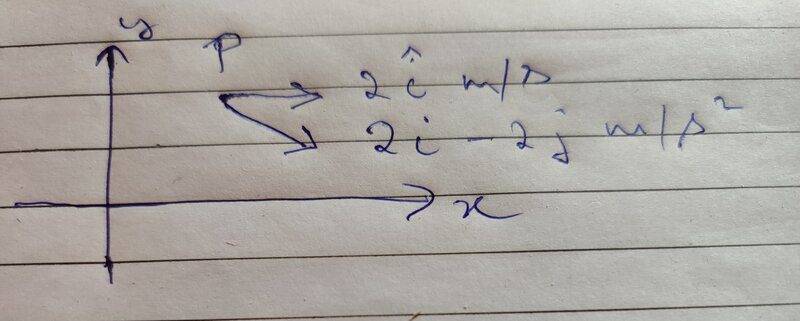 y
P
2î m/s
2i - 2j m/s²
x